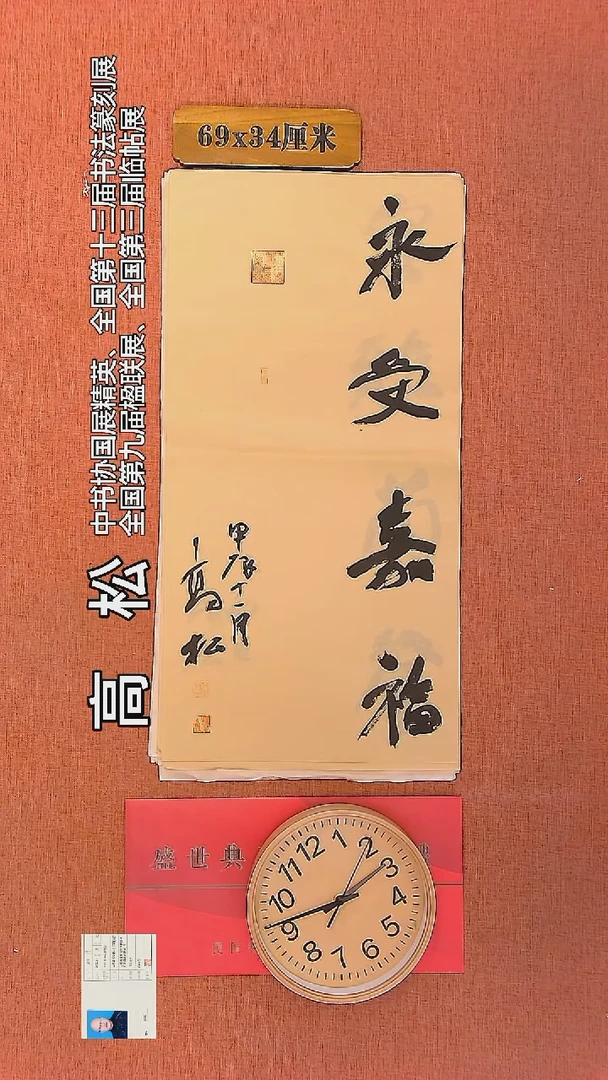 69x34厘米
永受嘉福
甲辰十一月
高松
高 松
中书协国展精英、全国第十三届书法篆刻展
全国第九届楹联展、全国第三届临帖展
盛世典
12
1
2
3
4
5
6
7
8
9
10
11